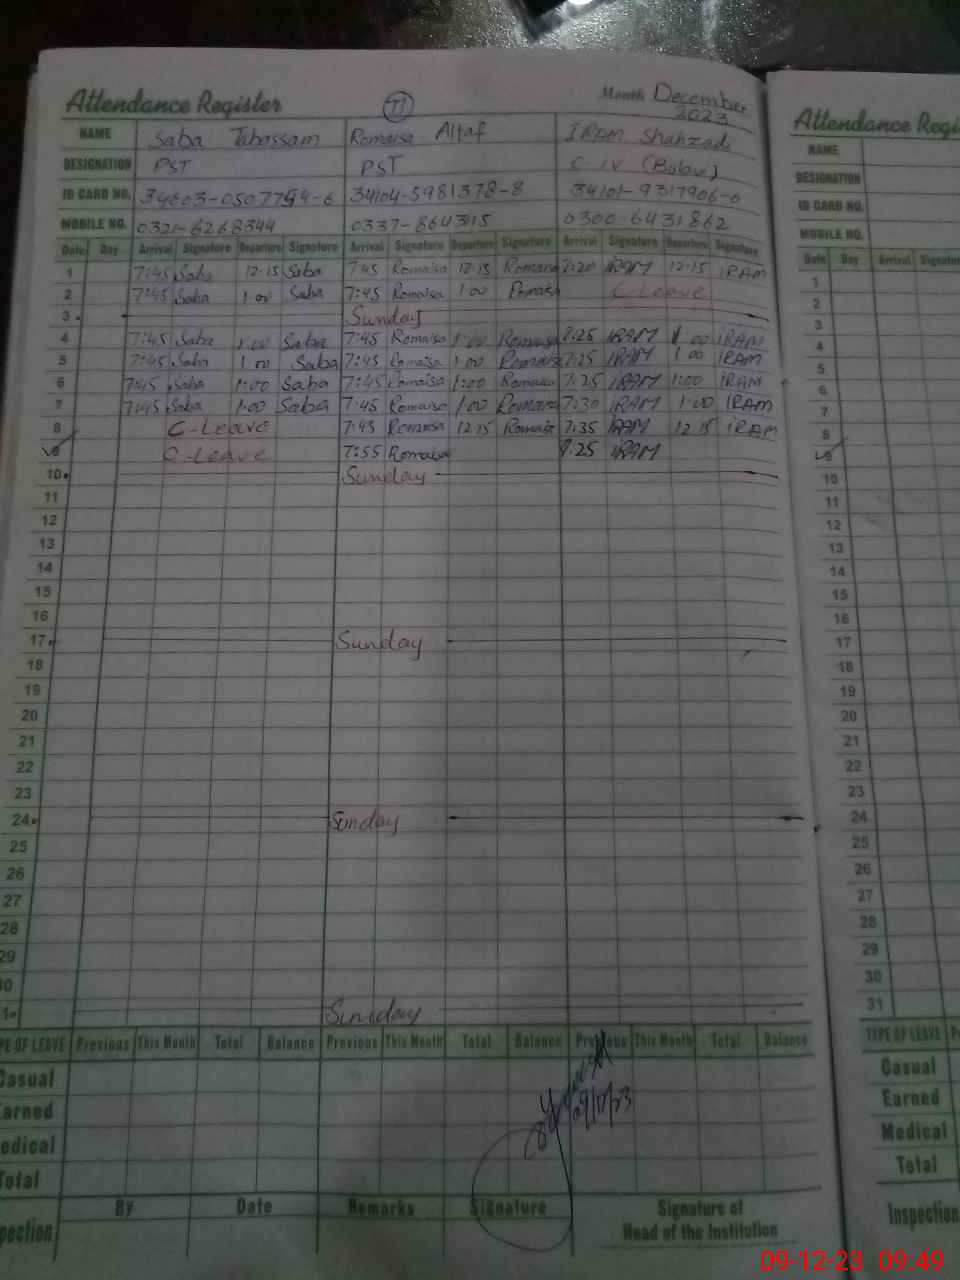 Attendance Register T1 Month December 2023
NAME Saba Tabassam Romaisa Altaf IRAM Shahzad
DESIGNATION PST PST C-IV (Babu)
ID CARD NO. 34603-0507754-6 34104-5981378-8 34101-9317906-0
MOBILE NO. 0321-6268344 0337-864315 0300-6431862
Date Day Arrival Signature Departure Signature Arrival Signature Departure Signature Arrival Signature Departure Signature
1 7:45 Saba 12:15 Saba 7:45 Romaisa 12:15 Romaisa 7:20 IRAM 12:15 IRAM
2 7:45 Saba 1:00 Saba 7:45 Romaisa 1:00 Romaisa C-Leave
3 Sunday
4 7:45 Saba 1:00 Saba 7:45 Romaisa 1:00 Romaisa 7:25 IRAM 1:00 IRAM
5 7:45 Saba 1:00 Saba 7:45 Romaisa 1:00 Romaisa 7:25 IRAM 1:00 IRAM
6 7:45 Saba 1:00 Saba 7:45 Romaisa 1:00 Romaisa 7:25 IRAM 1:00 IRAM
7 7:45 Saba 1:00 Saba 7:45 Romaisa 1:00 Romaisa 7:30 IRAM 1:00 IRAM
8 C-Leave 7:45 Romaisa 12:15 Romaisa 7:35 IRAM 12:15 IRAM
9 C-Leave 7:55 Romaisa 7:25 IRAM
10 Sunday
11
12
13
14
15
16
17 Sunday
18
19
20
21
22
23
24 Sunday
25
26
27
28
29
30
31 Sunday
TYPE OF LEAVE Previous This Month Total Balance Previous This Month Total Balance Previous This Month Total Balance
Casual
Earned
Medical
Total
Inspection By Date Remarks Signature Signature of
Head of the Institution
Attendance Regi
NAME
DESIGNATION
ID CARD NO.
MOBILE NO.
Date Day Arrival Signatur
1
2
3
4
5
6
7
8
9
10
11
12
13
14
15
16
17
18
19
20
21
22
23
24
25
26
27
28
29
30
31
TYPE OF LEAVE P
Casual
Earned
Medical
Total
Inspection
09-12-23 09:49